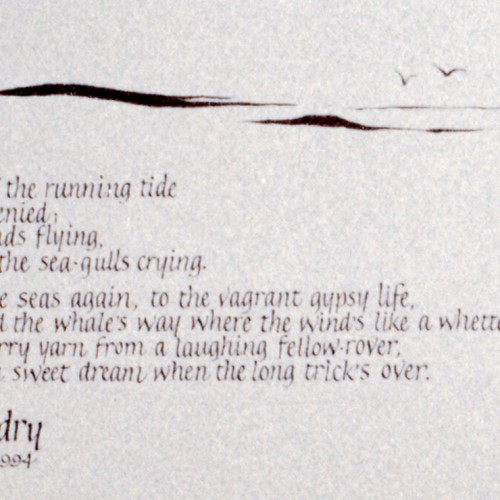 the running tide
enied;
ds flying,
the sea-gulls crying.
e seas again, to the vagrant gypsy life,
d the whale's way where the wind's like a whette
rry yarn from a laughing fellow-rover,
sweet dream when the long trick's over.
dry
1994